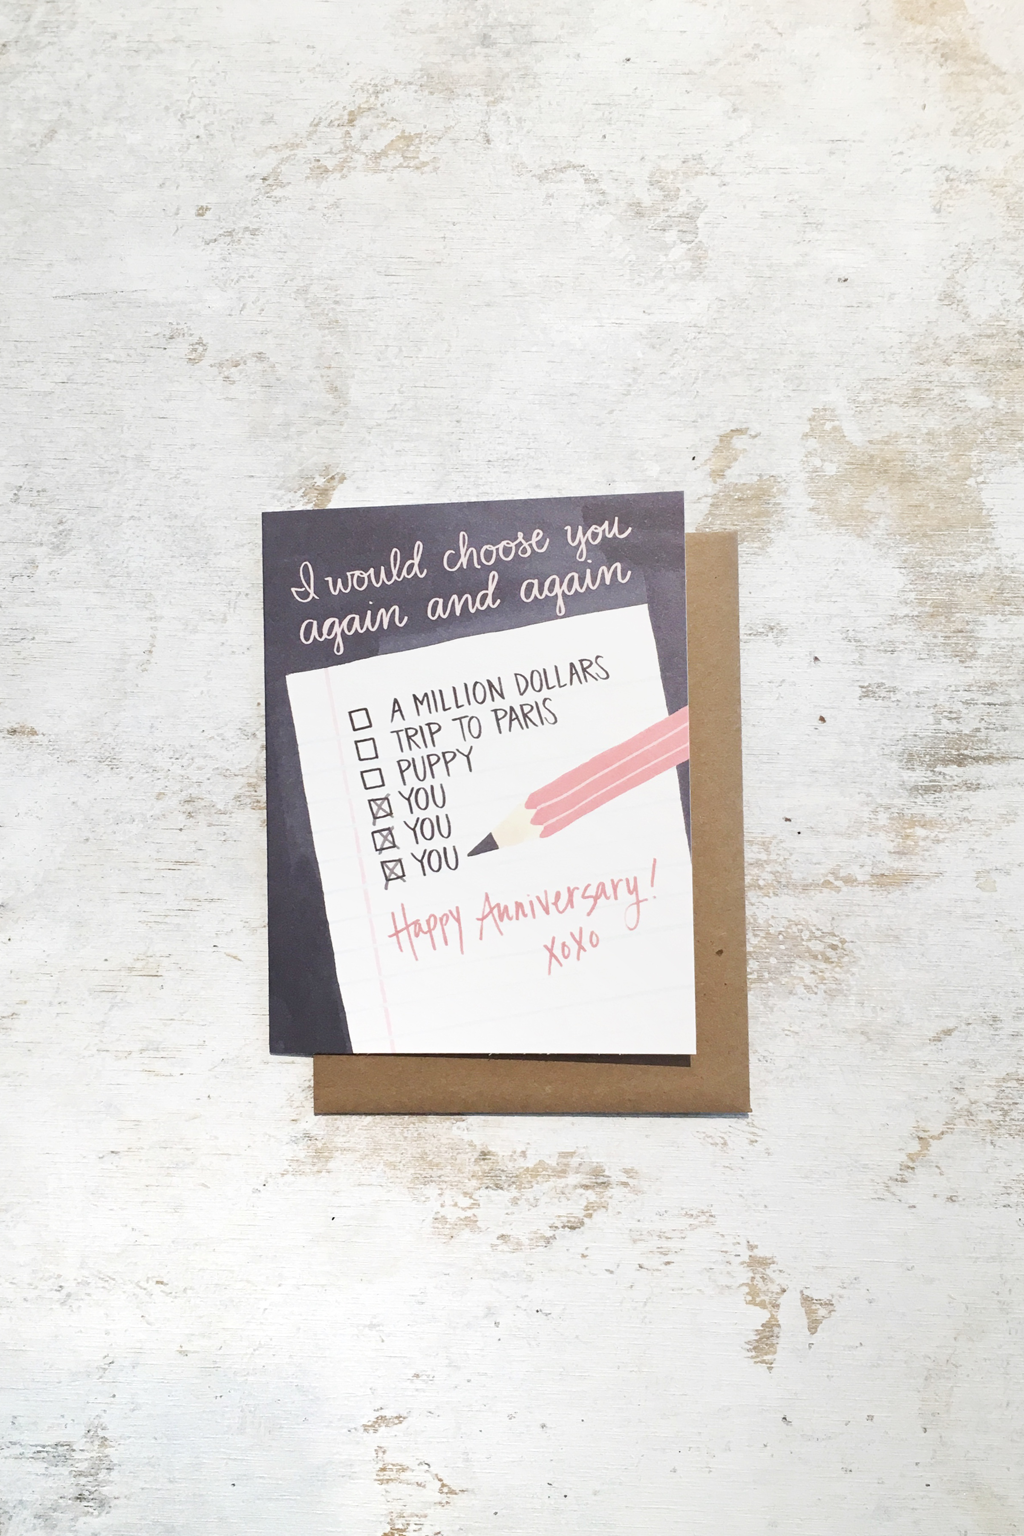 I would choose you
again and again
A MILLION DOLLARS
TRIP TO PARIS
PUPPY
YOU
YOU
YOU
Happy Anniversary!
XoXo